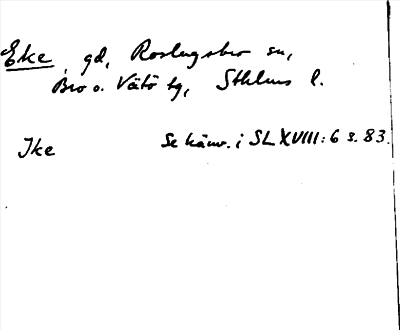 Eke, gd, Roslagsbro sn,
Bro o. Vätö tg, Sthlms l.
Ike Se hänv. i SL XVIII:6 s. 83.